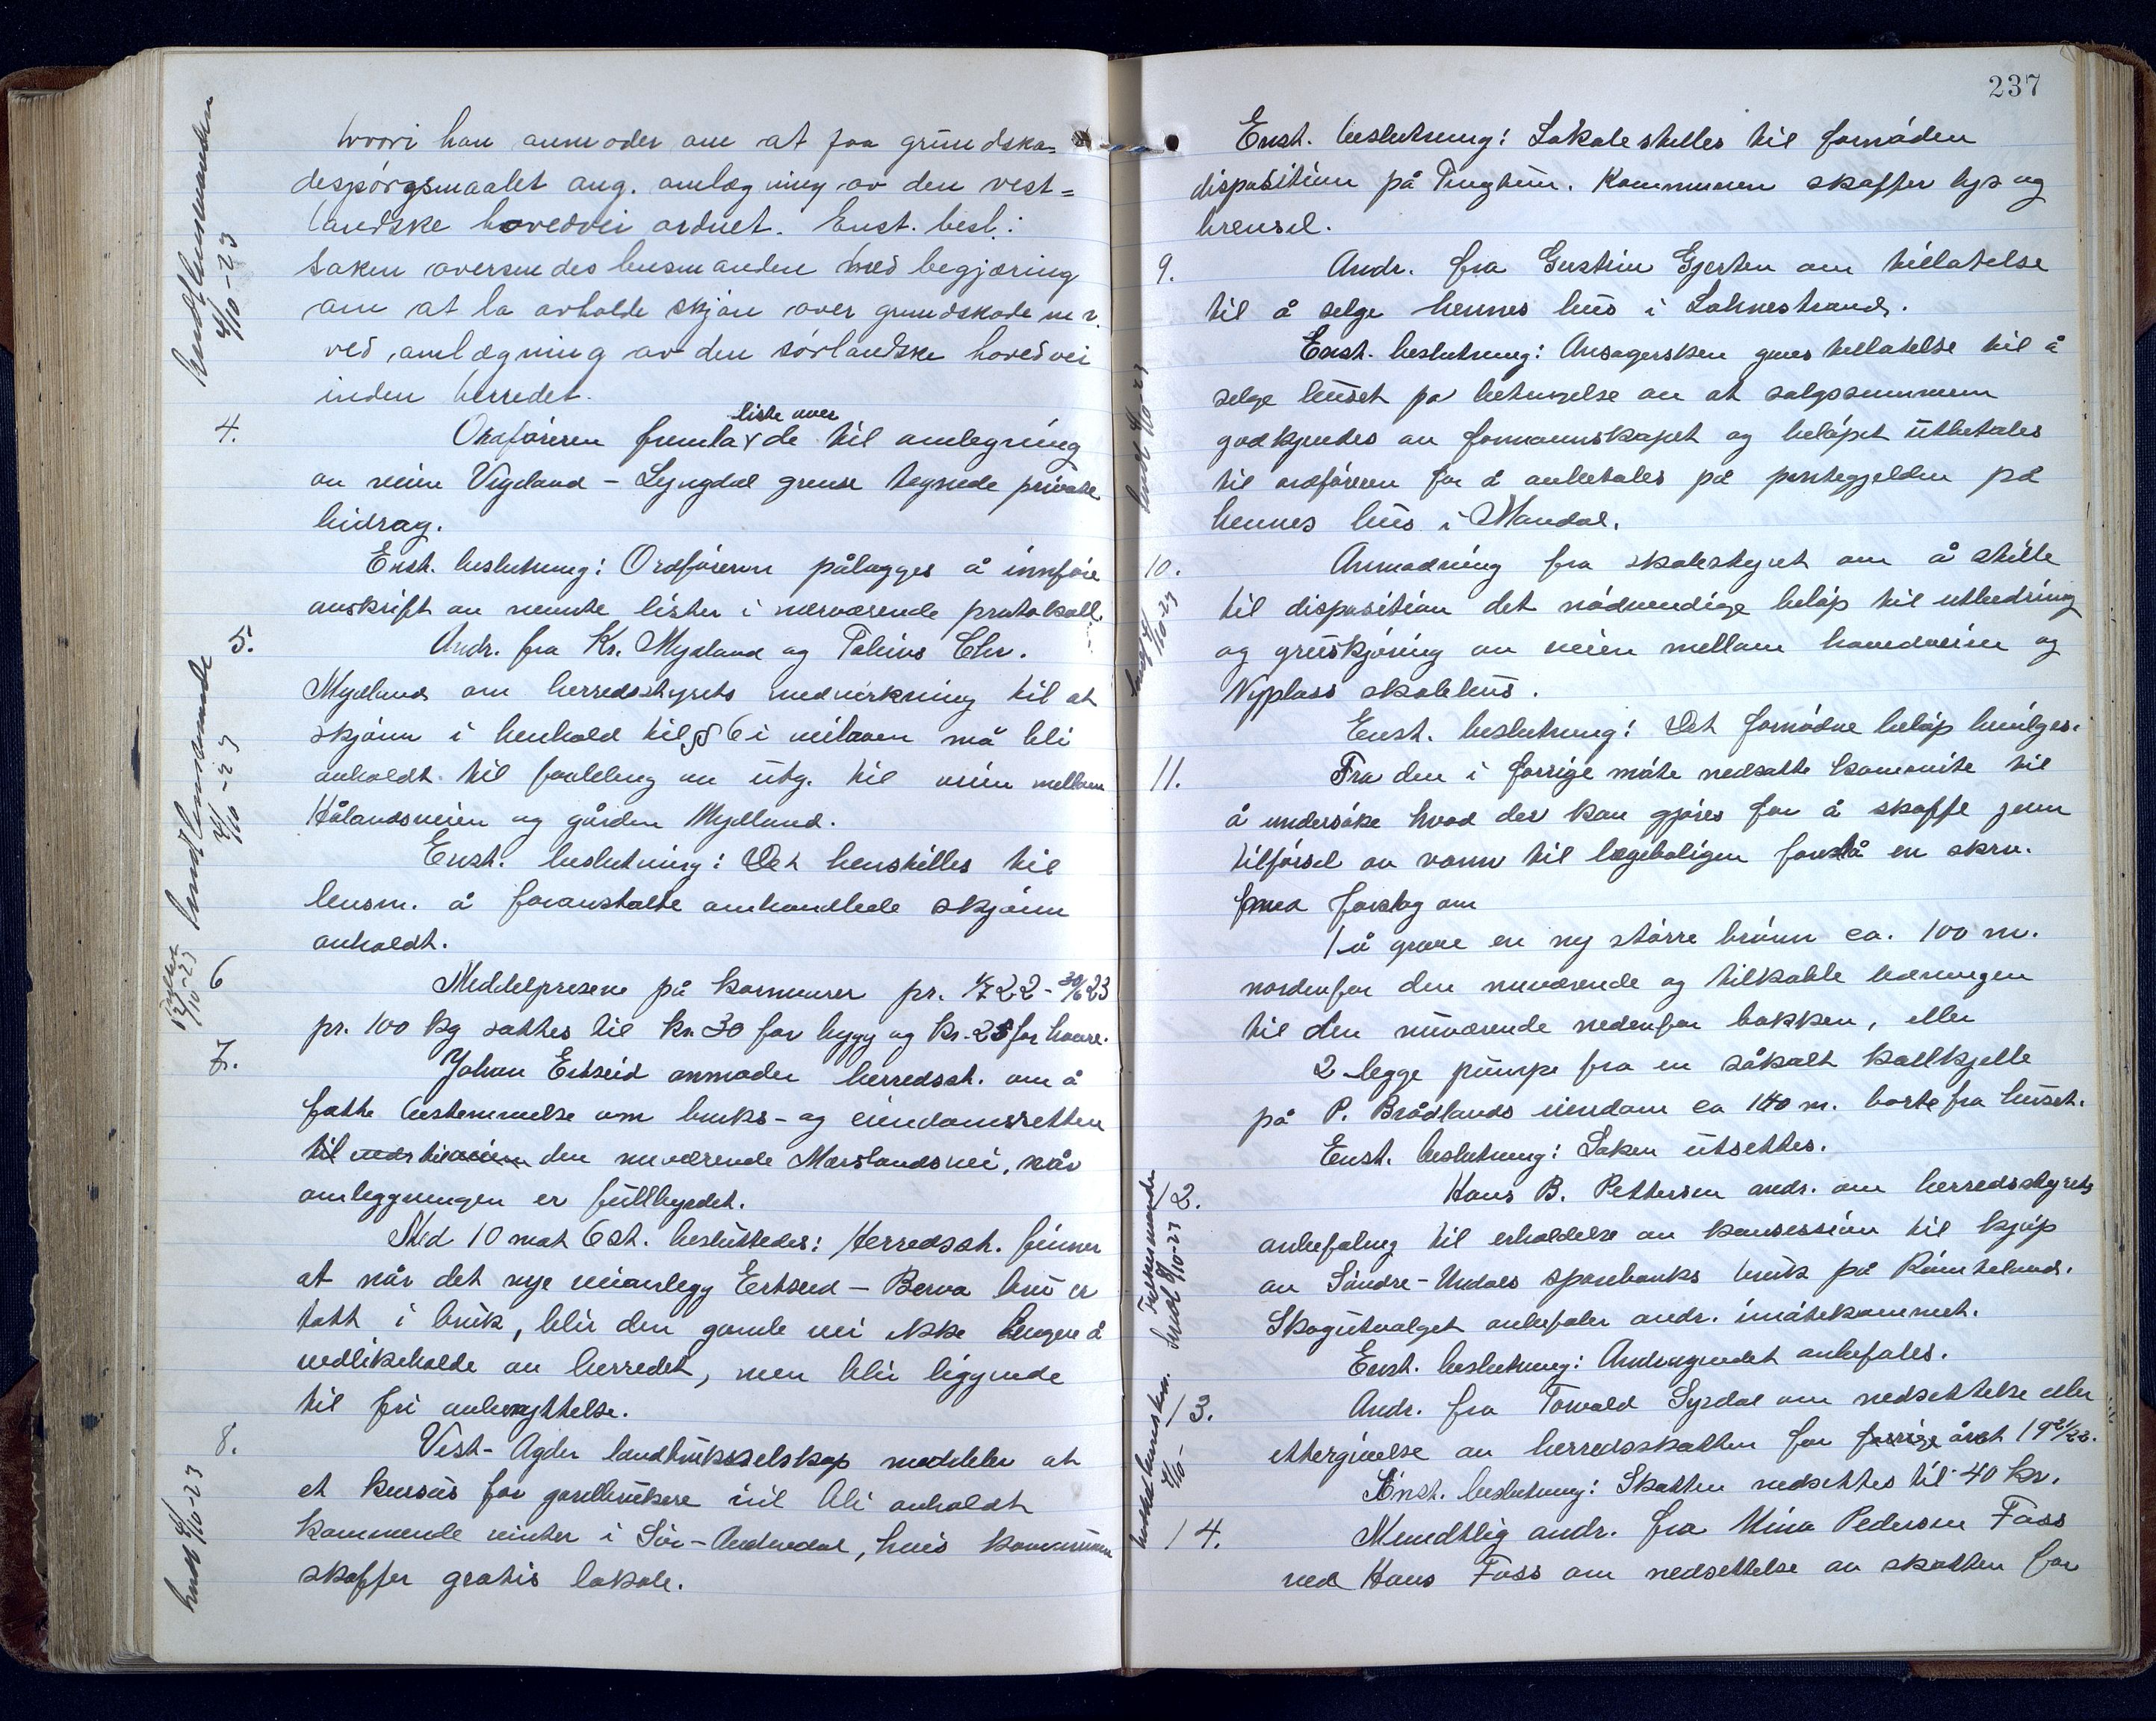 hvori han anmoder om at faa grundska=
despörgsmaalet ang. omlægning av den vest=
landske hovedvei ordnet. Enst. besl.:
Saken oversendes lensmanden med begjæring
om at la avholde skjön over grundskade m.v.
ved omlægning av den sörlandske hovedvei
inden herredet.
4. Ordföreren fremla liste over de til omlegning
av veien Vigeland - Lyngdal grense tegnede private
bidrag.
Enst. beslutning: Ordföreren pålegges å innföre
avskrift av nevnte lister i nærværende protokoll.
5. Andr. fra Kr. Mydland og Tobias Chr.
Mydland om herredsstyrets medvirkning til at
skjönn i henhold til § 6 i veiloven må bli
avholdt til fordeling av utg. til veien mellom
Hålandsveien og gården Mydland.
Enst. beslutning: Det henstilles til
lensm. å foranstalte omhandlede skjönn
avholdt.
6 Middelprisene på kornvarer pr. 1/7 22 - 30/6 23
pr. 100 kg sattes til kr. 30 for bygg og kr. 25 for havre.
7. Johan Ertseid anmoder herredsst. om å
fatte bestemmelse om bruks- og eiendomsretten
til den nuværende Marslandsvei, når
omleggningen er fullbyrdet.
Med 10 mot 6 st. besluttedes: Herredsst. finner
at når det nye veianlegg Ertseid - Berva bru er
tatt i bruk, blir den gamle vei ikke lengere å
vedlikeholde av herredet, men blir liggende
til fri avbenyttelse.
8. Vest-Agder landbruksselskap meddeler at
et kursus for gardbrukere vil bli avholdt
kommende vinter i Sör-Audnedal, hvis kommunen
skaffer gratis lokale.
sendt lensmanden
4/10-23
sendt lensmannen
4/10-23
12/10-23
sendt 4/10-23
237
Enst. beslutning: Lokale stilles til fornöden
disposition på Tinghuu. Kommunen skaffer lys og
brensel.
9. Andr. fra Gustava Gjertsen om tillatelse
til å selge hennes hus i Lohnestrand.
Enst. beslutning: Ansögersken gives tillatelse til å
selge huset på betingelse av at salgssummen
godkjendes av formannskapet og belöpet utbetales
til ordföreren for å avbetales på pantegjelden på
hennes hus i Mandal.
10. Anmodning fra skolestyret om å stille
til disposition det nödvendige belöp til utbedring
og gruskjöring av veien mellom hovedveien og
Nyplass skolehus.
Enst. beslutning: Det fornödne belöp bevilges.
11. Fra den i forrige möte nedsatte komite til
å undersöke hvad der kan gjöres for å skaffe jevn
tilförsel av vann til lægeboligen forelå en skrv.
med forslag om
1 å grave en ny större brönn ca. 100 m.
nordenfor den nuværende og tilkoble ledningen
til den nuværende nedenfor bakken, eller
2 legge pumpe fra en såkalt kallkjelle
på P. Brådlands eiendom ca 140 m. borte fra huset.
Enst. beslutning: Saken utsettes.
12. Hans B. Pettersen andr. om herredsstyrets
anbefaling til erholdelse av konsession til kjöp
av Söndre-Undals sparebanks bruk på Rümteland.
Skogutvalget anbefaler andr. imötekommet.
Enst. beslutning: Andragendet anbefales.
13. Andr. fra Torvald Syrdal om nedsettelse eller
ettergivelse av herredsskatten for forrige året 1922/23.
Enst. beslutning: Skatten nedsettes til 40 kr.
14. Mundtlig andr. fra Mina Pedersen Foss
ved Hans Foss om nedsettelse av skatten for
sendt 4/10-23
sendt 4/10-23
sendt 8/10-23
4/10-